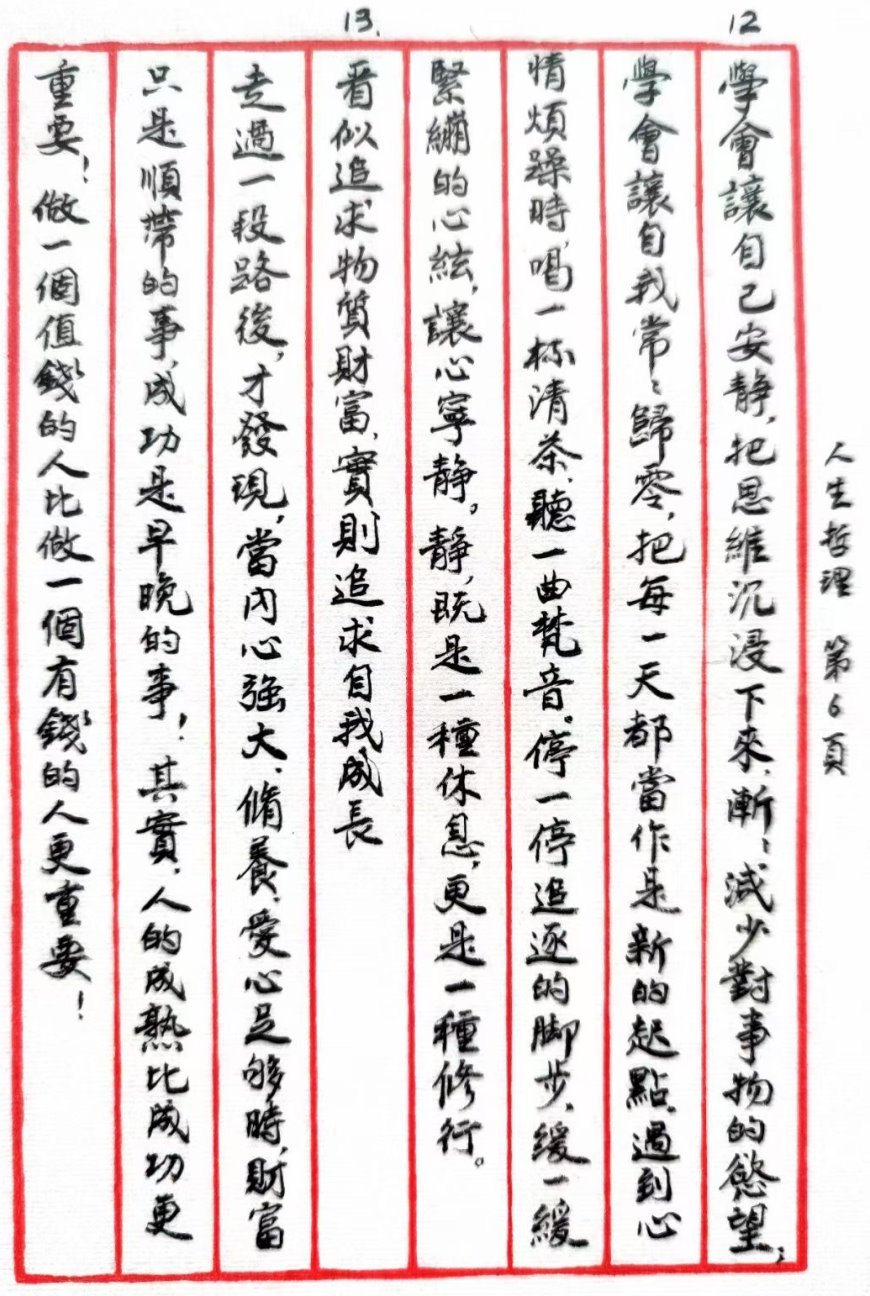 人生哲理 第6頁
12
學會讓自己安靜,把思維沉浸下來,漸漸減少對事物的慾望;
學會讓自我常常歸零,把每一天都當作是新的起點,遇到心
情煩躁時,喝一杯清茶,聽一曲梵音。停一停追逐的脚步,緩一緩
緊繃的心絃,讓心寧靜。靜,既是一種休息,更是一種修行。
13.
看似追求物質財富,實則追求自我成長
走過一段路後,才發現,當內心強大、脩養、愛心足够時,財富
只是順帶的事,成功是早晚的事!其實,人的成熟比成功更
重要!做一個值錢的人比做一個有錢的人更重要!